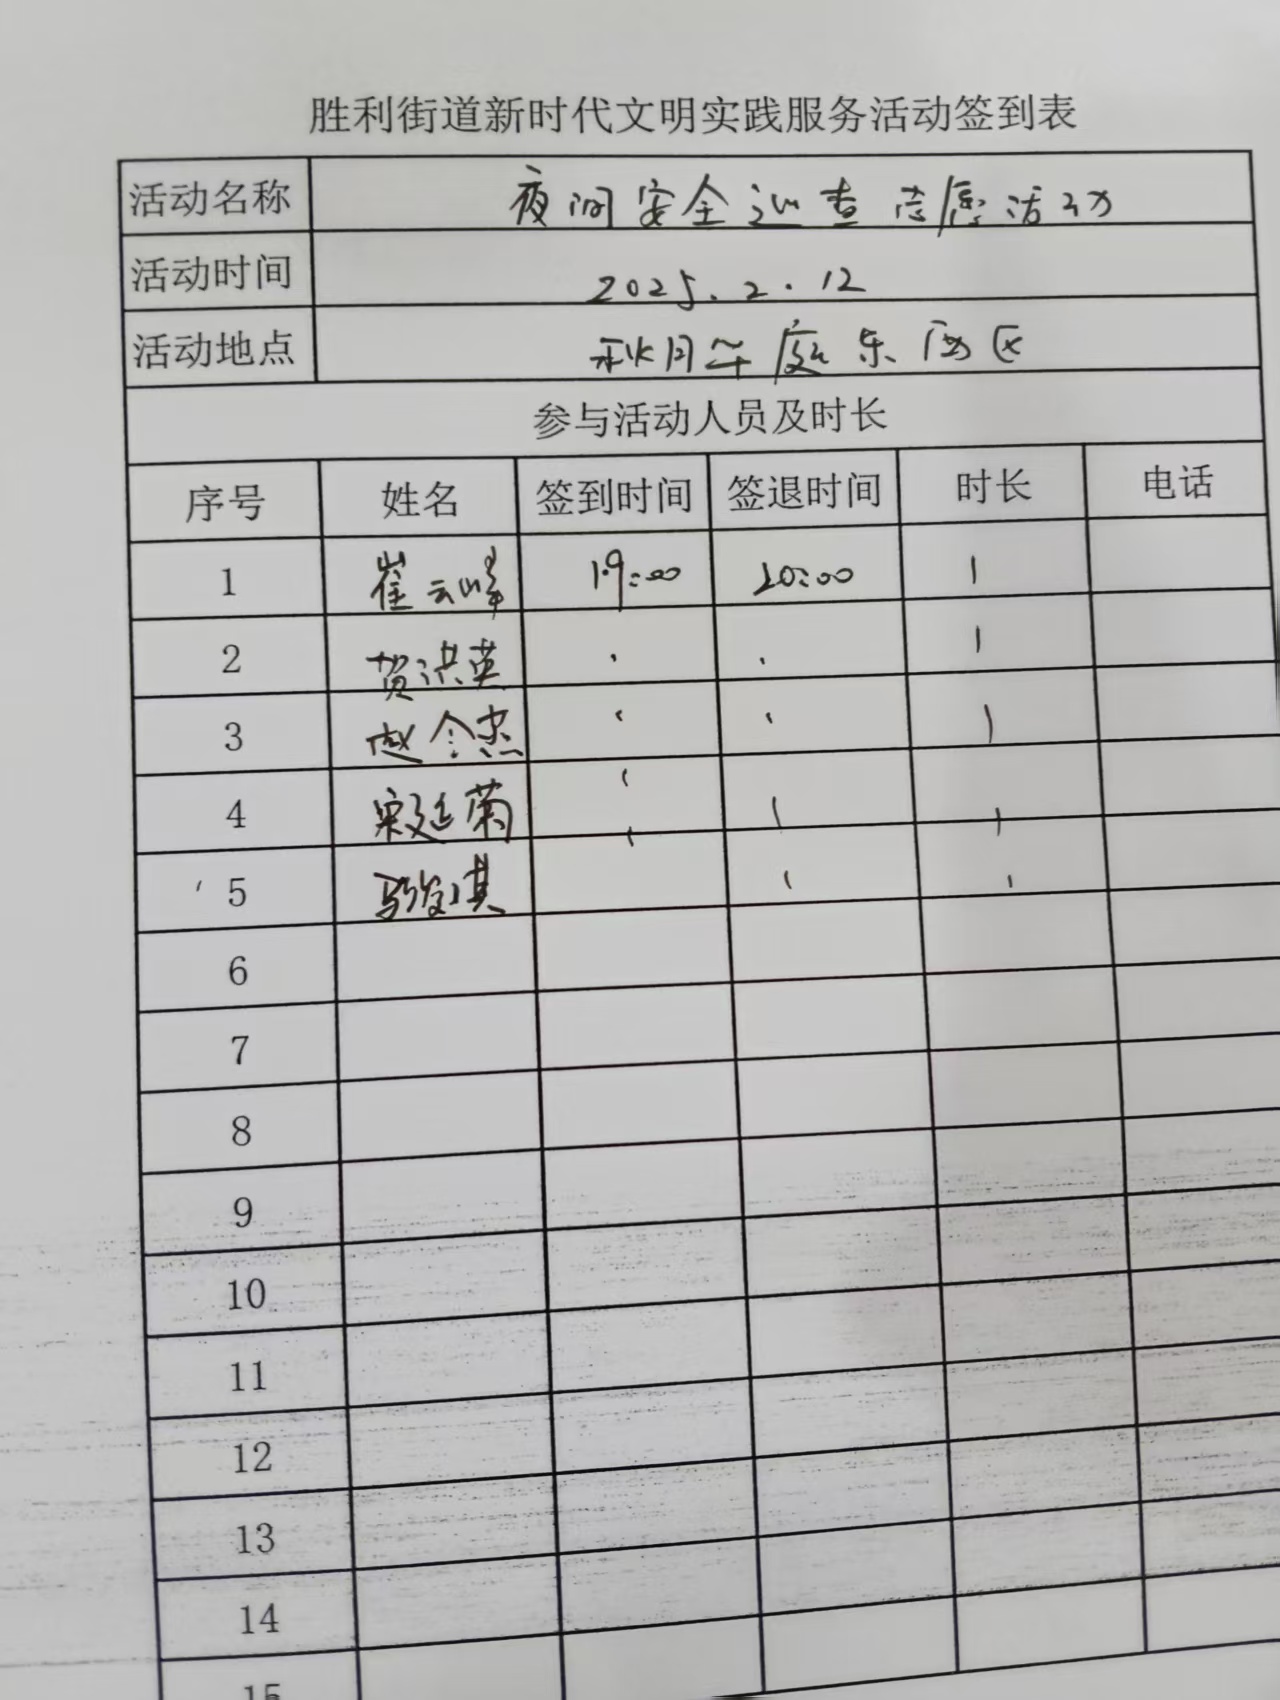 胜利街道新时代文明实践服务活动签到表
活动名称 夜间安全巡查志愿活动
活动时间 2025.2.12
活动地点 秋月华庭东西区
参与活动人员及时长
序号 姓名 签到时间 签退时间 时长 电话
1 崔云峰 19:00 20:00 1
2 贺洪英 1
3 赵令杰 1
4 宋廷菊
5
6
7
8
9
10
11
12
13
14
15